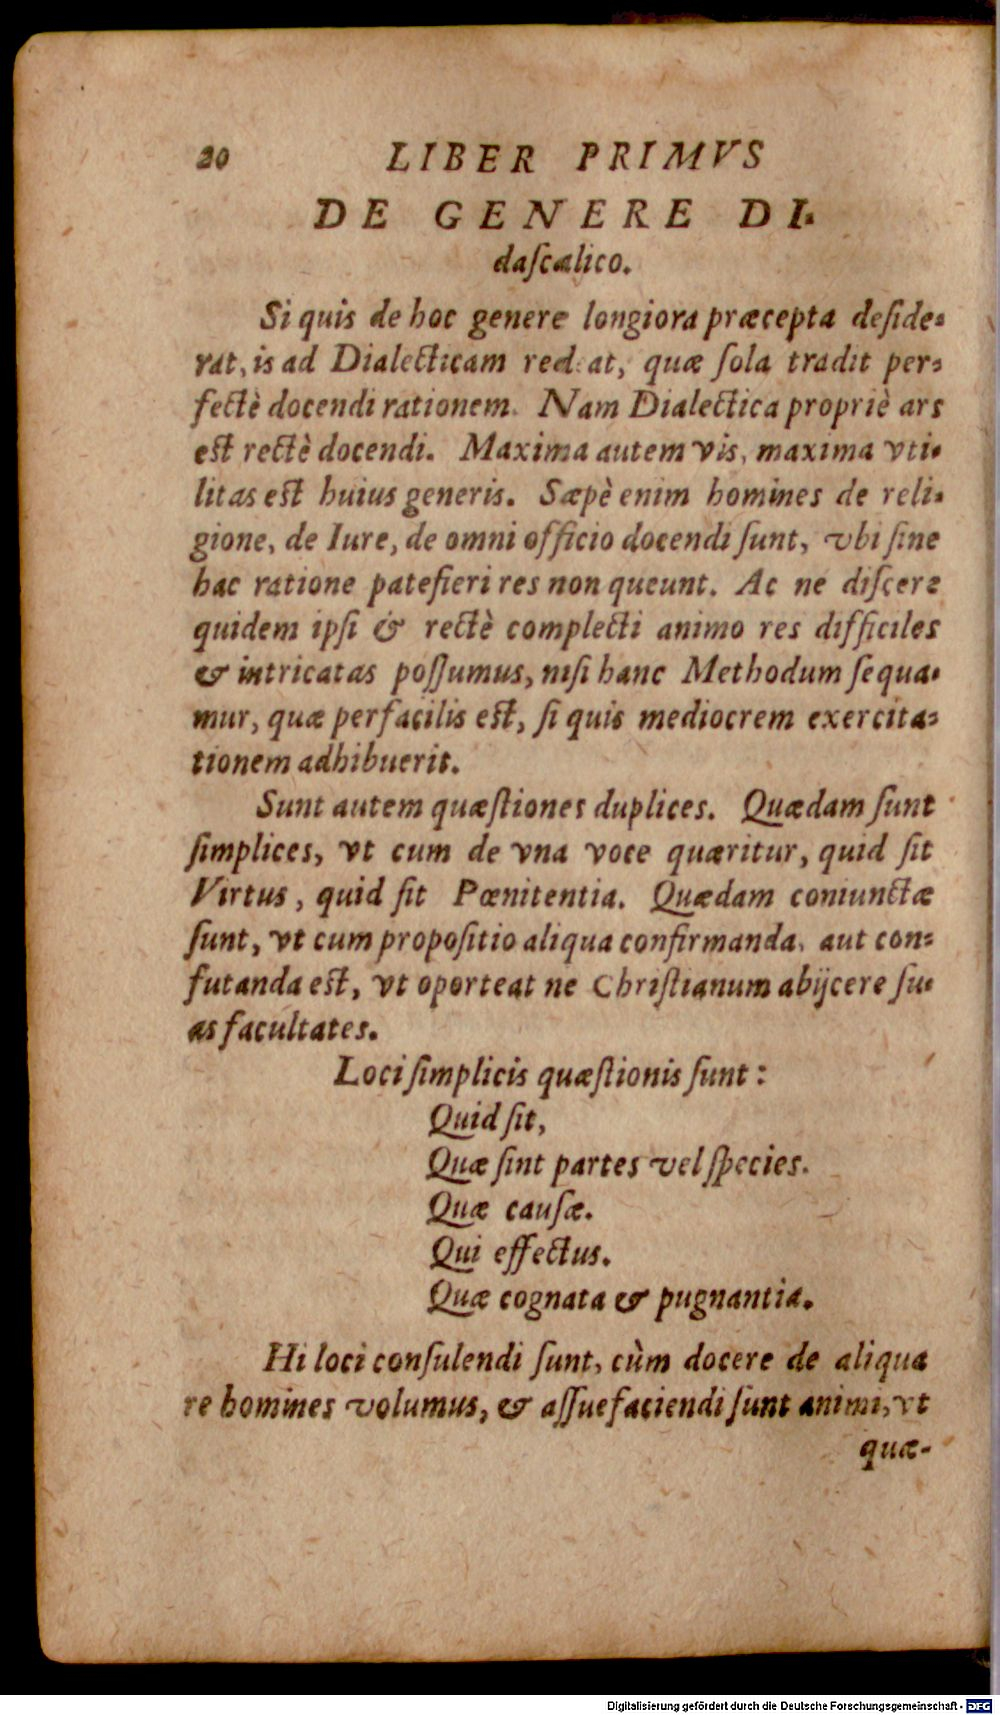 20 LIBER PRIMVS
DE GENERE DI-
daſcalico.
Si quis de hoc genere longiora præcepta deſide-
rat, is ad Dialecticam redeat, quæ ſola tradit per-
fectè docendi rationem. Nam Dialectica propriè ars
eſt rectè docendi. Maxima autem vis, maxima vti-
litas eſt huius generis. Sæpè enim homines de reli-
gione, de Iure, de omni officio docendi ſunt, vbi ſine
hac ratione patefieri res non queunt. Ac ne diſcere
quidem ipſi & rectè complecti animo res difficiles
& intricatas poſſumus, niſi hanc Methodum ſequa-
mur, quæ perfacilis eſt, ſi quis mediocrem exercita-
tionem adhibuerit.
Sunt autem quæſtiones duplices. Quædam ſunt
ſimplices, vt cum de vna voce quæritur, quid ſit
Virtus, quid ſit Pœnitentia. Quædam coniunctæ
ſunt, vt cum propoſitio aliqua confirmanda, aut con-
futanda eſt, vt oporteat ne Chriſtianum abijcere ſu-
as facultates.
Loci ſimplicis quæſtionis ſunt:
Quid ſit,
Quæ ſint partes vel ſpecies.
Quæ cauſæ.
Qui effectus.
Quæ cognata & pugnantia.
Hi loci conſulendi ſunt, cùm docere de aliqua
re homines volumus, & aſſuefaciendi ſunt animi, vt
quæ-
Digitalisierung gefördert durch die Deutsche Forschungsgemeinschaft - DFG